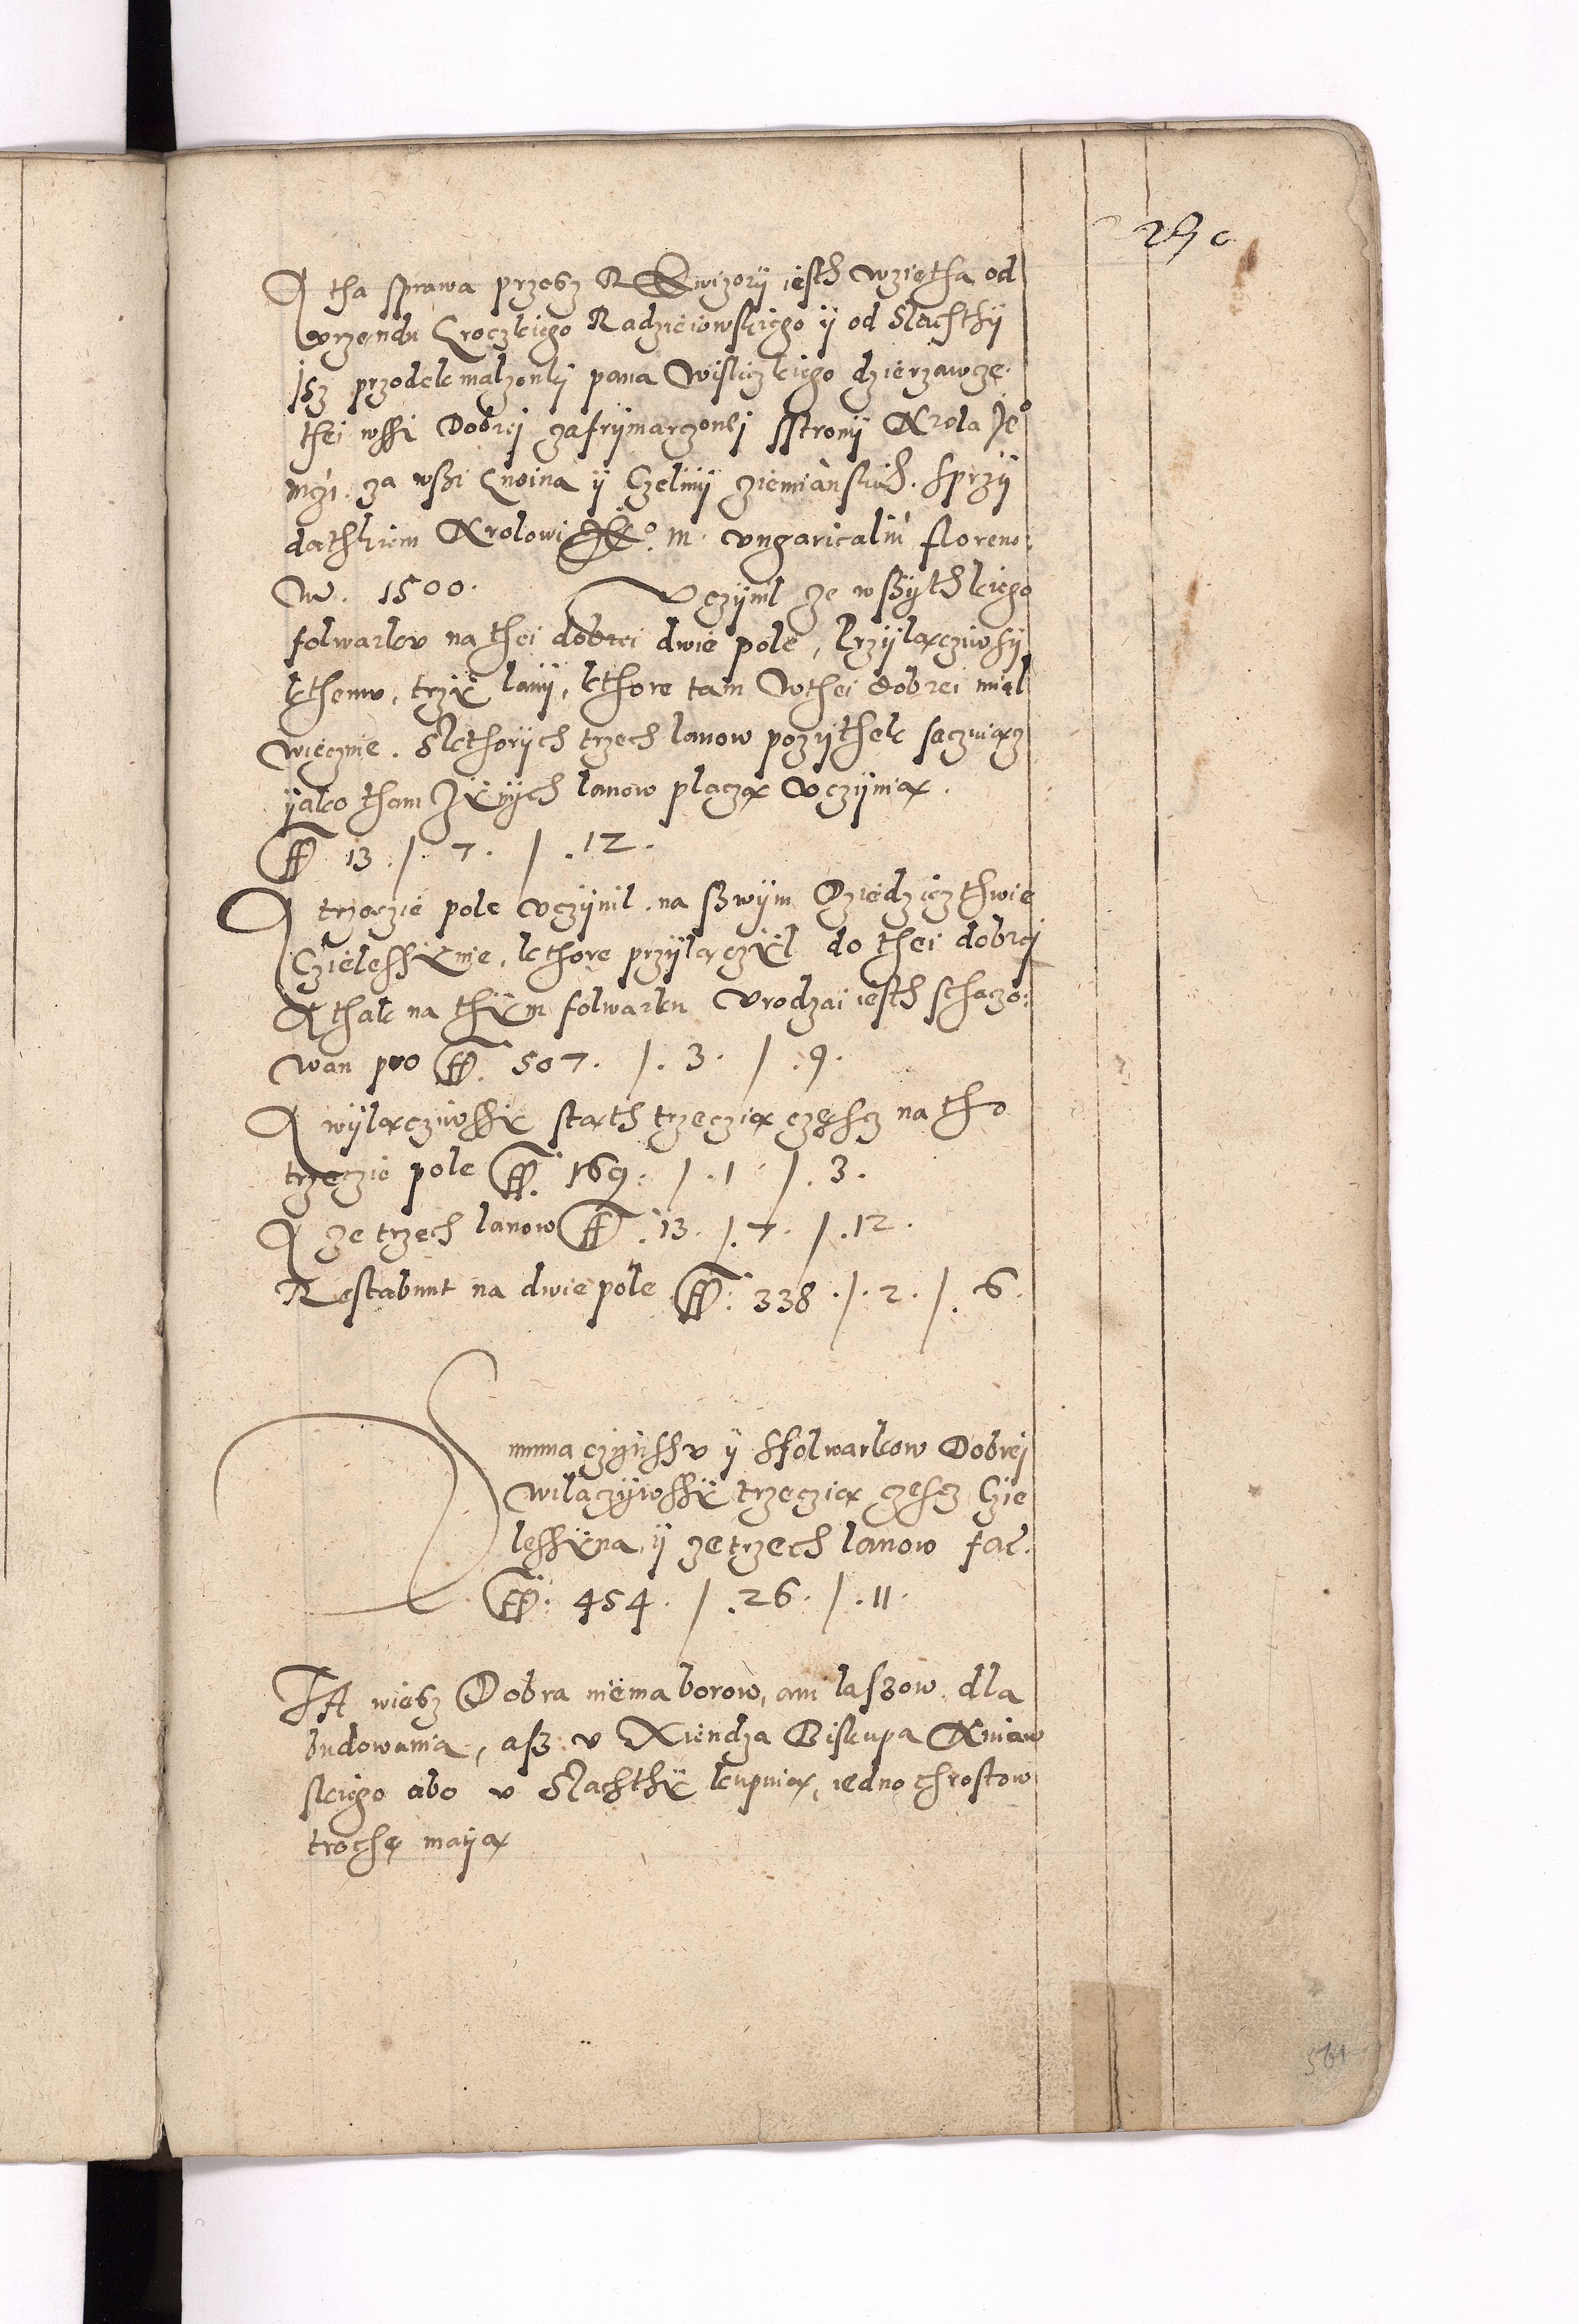 290
A tha sprawa przesz Rewizorÿ iesth wzietha od
vrzendu Groczkiego Radzieiowskiego ÿ od Slachthÿ
Jsz przodek malzonkj pana Wisliczkiego dzierzawcze
thei wssi Dobrej zafrÿmarczonej sstronÿ Krola Je°
mczi. za wszi Gnoina ÿ Czelinÿ ziemianskich. sprzÿ
dathkiem Krolowi Je°. m. vngaricaliu floreno:
w. 1500. Vczÿnil ze wszÿthkiego
folwarku na thei dobrei dwie pole, przÿlaczÿwsÿ
kthemu, trzÿ lanÿ, kthore tam wthei dobrei mial
wiecznie. Skthorÿch trzech lanow pozÿthek saczuiącz
ÿako tham Jnÿch lanow placzą vczÿnią.
ff 13 /. 7. / .12.
A trzeczie pole vczÿnil na szwÿm Dziedzicztwie
Czielessÿnie, kthore przÿlączÿl do thei dobrej
A thak na thÿm folwarku vrodzai iesth schaczo:
wan pro ff. 507. /. 3. / .9.
A wÿlączÿwssÿ stąth trzeczią część na tho
trzeczie pole ff. 169. /.1 /. 3.
A ze trzech lanow ff .13. /.7. / .12.
Restabunt na dwie pole ff: 338 ./. 2. /. 6.
Summa czÿnssv ÿ ffolwarkow Dobrej
wilaczÿwssÿ trzeczią czescz Czie
lessÿna, ÿ ze trzech lanow fac.
ff: 454. / .26. / .11.
TA wiesz Dobra niema borow, ani laszow dla
budowania, asz v Xiendza Biskupa Kuiaw
skiego abo v Slachthÿ kupuią, iedno chrostow
trochę maÿą
561